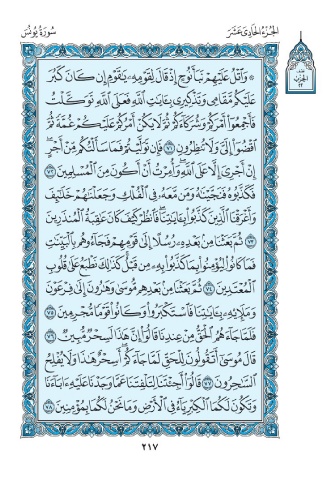 الجزء الحادي عشر
سورة يونس
۞ وَٱتْلُ عَلَيْهِمْ نَبَأَ نُوحٍ إِذْ قَالَ لِقَوْمِهِۦ يَٰقَوْمِ إِن كَانَ كَبُرَ
عَلَيْكُم مَّقَامِي وَتَذْكِيرِي بِـَٔايَٰتِ ٱللَّهِ فَعَلَى ٱللَّهِ تَوَكَّلْتُ
فَأَجْمِعُوٓا۟ أَمْرَكُمْ وَشُرَكَآءَكُمْ ثُمَّ لَا يَكُنْ أَمْرُكُمْ عَلَيْكُمْ غُمَّةً ثُمَّ
ٱقْضُوٓا۟ إِلَيَّ وَلَا تُنظِرُونِ ٧١ فَإِن تَوَلَّيْتُمْ فَمَا سَأَلْتُكُم مِّنْ أَجْرٍ
إِنْ أَجْرِيَ إِلَّا عَلَى ٱللَّهِ وَأُمِرْتُ أَنْ أَكُونَ مِنَ ٱلْمُسْلِمِينَ ٧٢
فَكَذَّبُوهُ فَنَجَّيْنَٰهُ وَمَن مَّعَهُۥ فِي ٱلْفُلْكِ وَجَعَلْنَٰهُمْ خَلَٰٓئِفَ
وَأَغْرَقْنَا ٱلَّذِينَ كَذَّبُوا۟ بِـَٔايَٰتِنَا فَٱنظُرْ كَيْفَ كَانَ عَٰقِبَةُ ٱلْمُنذَرِينَ
٧٣ ثُمَّ بَعَثْنَا مِنۢ بَعْدِهِۦ رُسُلًا إِلَىٰ قَوْمِهِمْ فَجَآءُوهُم بِٱلْبَيِّنَٰتِ
فَمَا كَانُوا۟ لِيُؤْمِنُوا۟ بِمَا كَذَّبُوا۟ بِهِۦ مِن قَبْلُ كَذَٰلِكَ نَطْبَعُ عَلَىٰ قُلُوبِ
ٱلْمُعْتَدِينَ ٧٤ ثُمَّ بَعَثْنَا مِنۢ بَعْدِهِم مُّوسَىٰ وَهَٰرُونَ إِلَىٰ فِرْعَوْنَ
وَمَلَإِي۟هِۦ بِـَٔايَٰتِنَا فَٱسْتَكْبَرُوا۟ وَكَانُوا۟ قَوْمًا مُّجْرِمِينَ ٧٥
فَلَمَّا جَآءَهُمُ ٱلْحَقُّ مِنْ عِندِنَا قَالُوٓا۟ إِنَّ هَٰذَا لَسِحْرٌ مُّبِينٌ ٧٦
قَالَ مُوسَىٰٓ أَتَقُولُونَ لِلْحَقِّ لَمَّا جَآءَكُمْ أَسِحْرٌ هَٰذَا وَلَا يُفْلِحُ
ٱلسَّٰحِرُونَ ٧٧ قَالُوٓا۟ أَجِئْتَنَا لِتَلْفِتَنَا عَمَّا وَجَدْنَا عَلَيْهِ ءَابَآءَنَا
وَتَكُونَ لَكُمَا ٱلْكِبْرِيَآءُ فِي ٱلْأَرْضِ وَمَا نَحْنُ لَكُمَا بِمُؤْمِنِينَ ٧٨
٢١٧